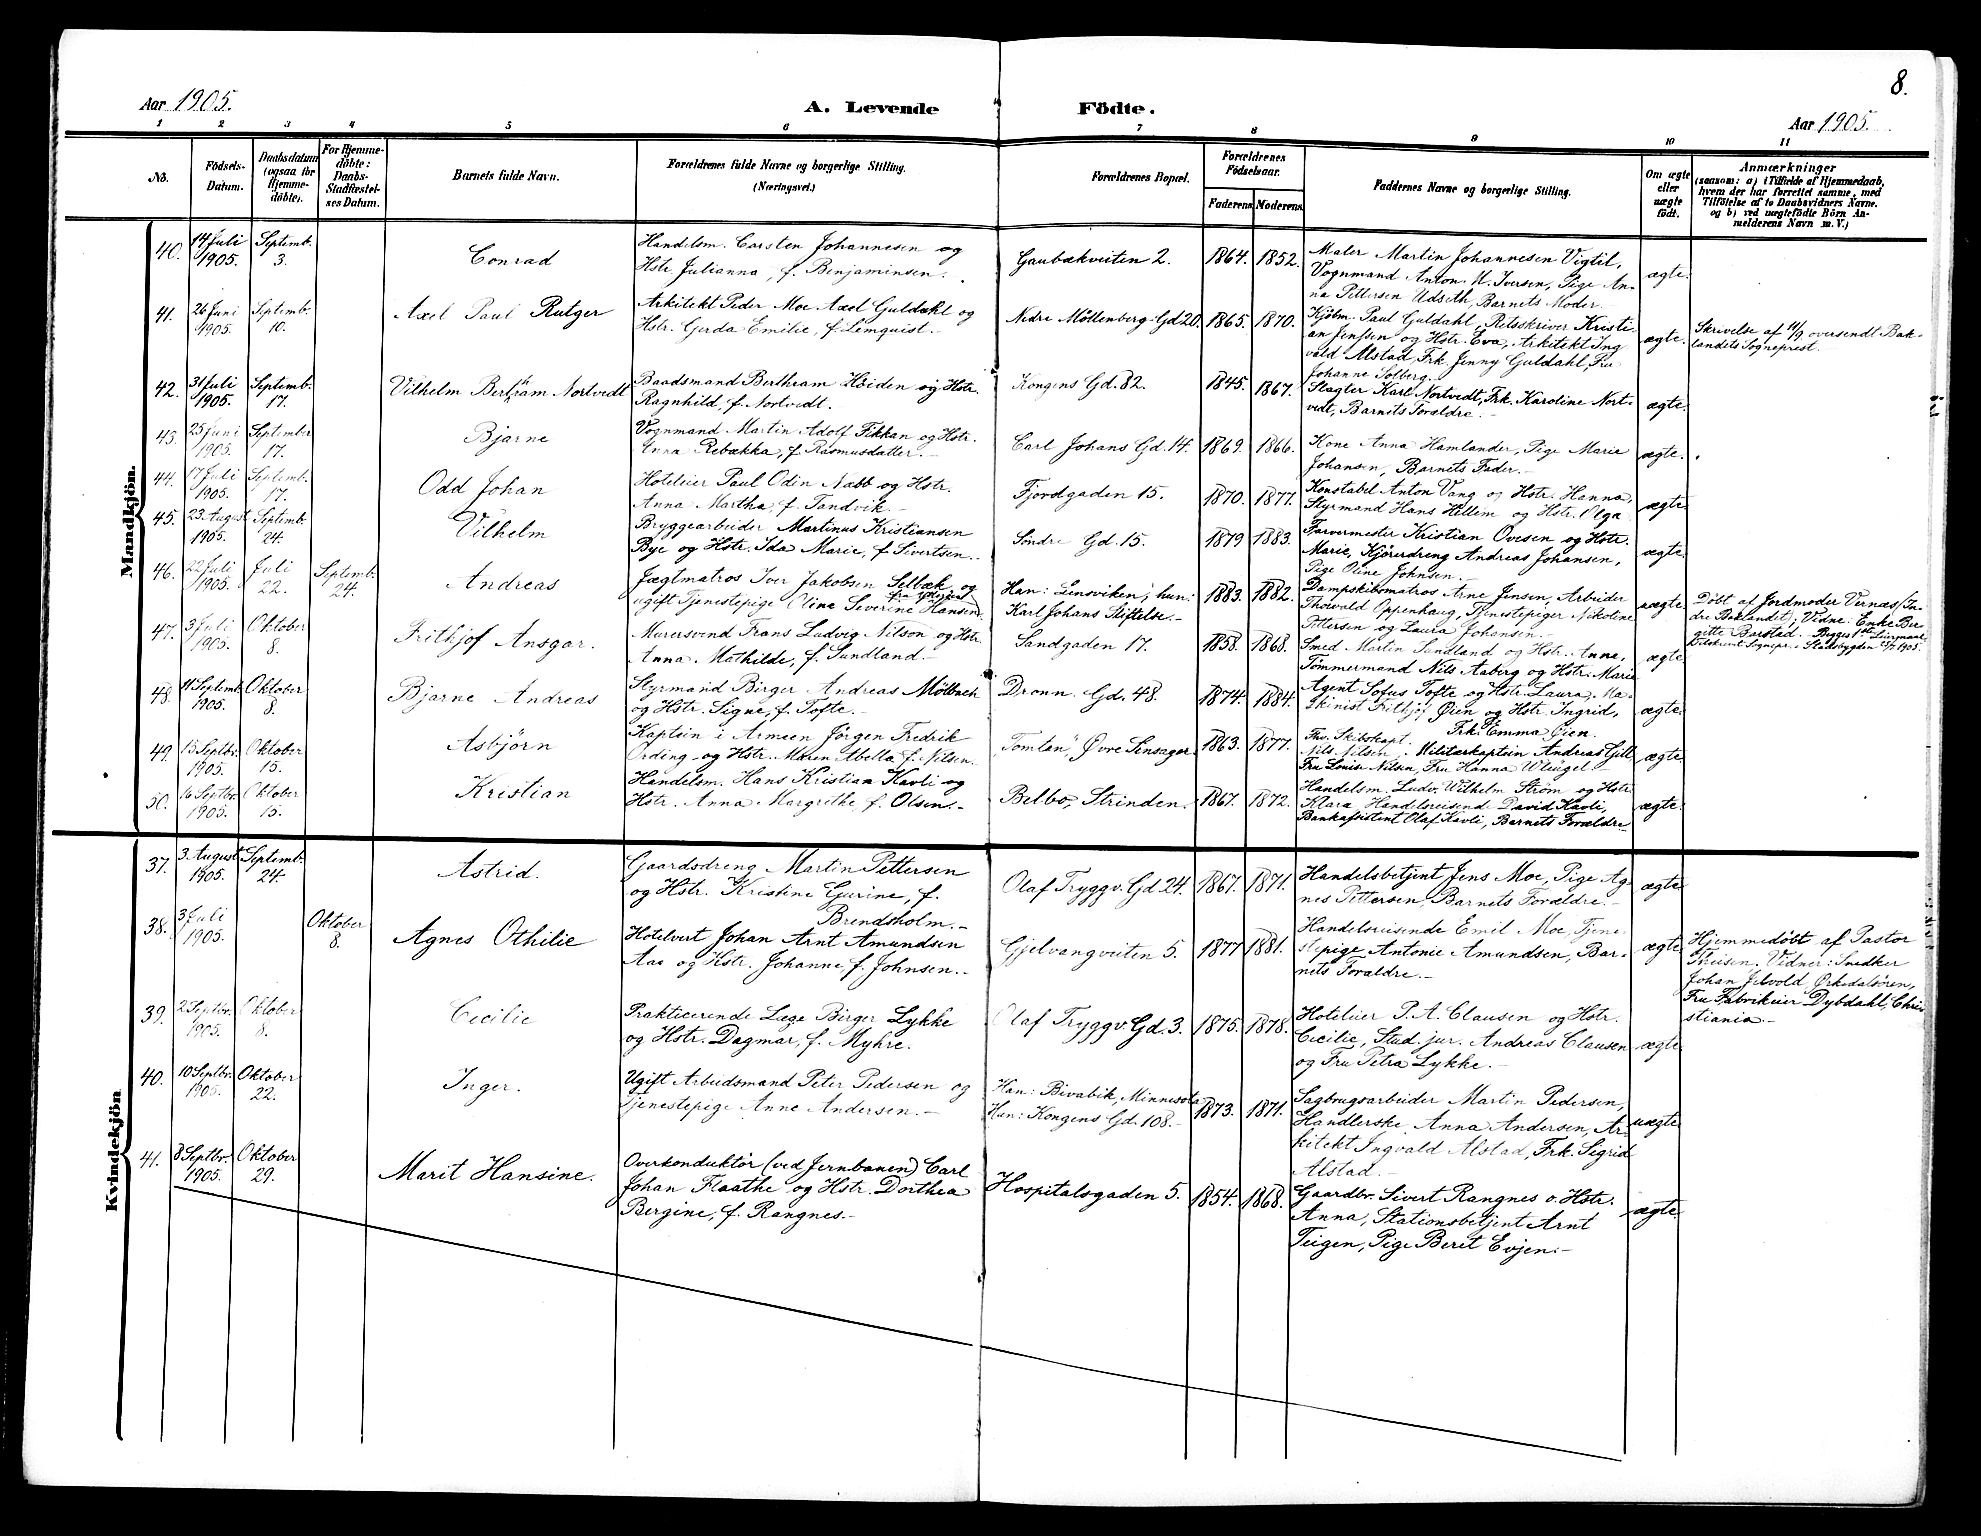 8.
Aar 1905.
A. Levende Födte.
Aar 1905.
1 2 3 4 5 6 7 8 9 10 11
No.
Födsels-
Datum.
Daabsdatum
(ogsaa for
Hjemme-
döbte).
For Hjemme-
döbte:
Daabs-
Stadfæstel-
ses Datum.
Barnets fulde Navn.
Forældrenes fulde Navne og borgerlige Stilling.
(Næringsvei.)
Forældrenes Bopæl.
Forældrenes
Födselsaar.
Faderens Moderens
Faddernes Navne og borgerlige Stilling.
Om ægte
eller
uægte
födt.
Anmærkninger
(saasom: a) i Tilfælde af Hjemmedaab,
hvem der har forrettet samme, med
Tilföielse af to Daabsvidners Navne.
og b) ved uægtefödte Börn An-
melderens Navn m. V.)
Mandkjön.
40.
14 Juli
1905.
Septemb.
3.
Conrad
Handelsm. Carsten Johannesen og
Hstr. Julianna, f. Benjaminsen.
Gaubækveiten 2.
1864.
1852.
Maler Martin Johannesen Vigtil,
Vognmand Anton M. Iversen, Pige An-
na Pettersen Udseth, Barnets Moder.
ægte.
41.
26 Juni
1905.
Septemb.
10.
Axel Paul Rutger
Arkitekt Peder Moe Axel Guldahl og
Hstr. Gerda Emilie, f. Lömquist.
Nedre Möllenberg Gd 20.
1865.
1870.
Kjöbm. Paul Guldahl, Retsskriver Kristi-
an Jenssen og Hstr. Eva, Arkitekt Ing
vald Alstad, Frk. Jenny Guldahl, Fru
Johanne Solberg.
ægte.
Skrivelse af 11/9 oversendt Bak-
landets Sogneprest.
42.
31 Juli
1905.
Septemb.
17.
Vilhelm Berthram Nortvedt
Baadsmand Berthram Höiden og Hstr.
Ragnhild, f. Nortvedt.
Kongens Gd. 82.
1845.
1867.
Slagter Karl Nortvedt, Frk. Karoline Nort-
vedt, Barnets Forældre.
ægte.
43.
25 Juni
1905.
September
17.
Bjarne
Vognmand Martin Adolf Fikkan og Hstr.
Anna Rebækka, f. Rasmusdatter.
Carl Johans Gd. 14.
1869.
1866.
Kone Anna Hamlander, Pige Marie
Johansen, Barnets Fader.
ægte.
44.
17 Juli
1905.
Septemb.
17.
Odd Johan
Hoteleier Paul Odin Næbb og Hstr.
Anna Martha, f. Tandvik.
Fjordgaden 15.
1870.
1877.
Konstabel Anton Vang og Hstr. Hanna,
Styrmand Hans Hellem og Hstr. Olga
ægte.
45.
23 August
1905.
Septemb.
24.
Vilhelm
Bryggearbeider Martinus Kristiansen
Bye og Hstr. Ida Marie, f. Sivertsen.
Söndre Gd. 15.
1879
1883.
Farvermester Kristian Ovesen og Hstr.
Marie, Kjöredreng Andreas Johansen,
Pige Oline Johnsen.
ægte.
46.
22 Juli
1905.
Juli
22.
Septemb.
24.
Andreas
Jægtmatros Iver Jakobsen Selbæk og
ugift Tjenestepige Olina Severine Hansen
Han: Lensviken; hun:
Karl Johans Stiftelse.
1883.
1882.
Dampskibsmatros Arne Jensen, Arbeider
Thorvald Oppenhaug, Tjenestepiger Nikoline
Pettersen og Laura Johansen.
uægte.
Döbt af Jordmoder Vernæs (In-
dre Baklandet); Vidne: Enke Ber-
gitte Barstad.
47.
3 Juli
1905.
Oktober
8.
Frithjof Ansgar.
Murersvend Frans Ludvig Nilson og Hstr.
Anna Mathilde, f. Sundland.
Sandgaden 17.
1858.
1868.
Smed Martin Sundland og Hstr. Anne,
Tömmermand Nils Aaberg og Hstr. Marie
ægte.
48.
11 Septemb.
1905.
Oktober
8.
Bjarne Andreas
Styrmand Birger Andreas Möllbach
og Hstr. Signe, f. Tofte.
Dronn. Gd. 48.
1874.
1884.
Agent Sofus Tofte og Hstr. Laura, Ma-
skinist Frithjof Öien og Hstr. Ingrid,
Frk. Emma Öien.
ægte.
49.
15 Septbr.
1905.
Oktober
15.
Asbjörn
Kaptein i Armeen Jörgen Fredrik
Ording og Hstr. Maren Abella, f. Nilsen.
"Tomtan", Övre Singsager
1863.
1877.
Fhv. Skibskapt.
Nils Nilsen, Militærkaptein Andreas Gill
Fru Louise Nilsen, Fru Hanna Wleügel.
ægte.
50.
16 Septbr.
1905.
Oktober
15.
Kristian
Handelsm. Hans Kristian Kavli og
Hstr. Anna Margrethe, f. Olsen.
Belbo, Strinden.
1867.
1872.
Handelsm. Ludv. Wilhelm Ström og Hstr.
Klara, Handelsreisend. David Kavli,
Bankassistent Olaf Kavli, Barnets Forældre.
ægte.
Kvindekjön
37.
3 August
1905.
Septemb.
24.
Astrid.
Gaardsdreng Martin Pettersen
og Hstr. Kristine Gurine, f.
Brendsholm.
Olaf Tryggv. Gd 24.
1867.
1871.
Handelsbetjent Jens Moe, Pige Ag-
nes Pettersen, Barnets Forældre.
ægte
38.
3 Juli
1905.
Oktober
8.
Agnes Othilie
Hotelvert Johan Arnt Amundsen
Aas og Hstr. Johanne, f. Johnsen.
Gjelvangveiten 5.
1877
1881.
Handelsreisende Emil Moe, Tjene-
stepige Antonie Amundsen, Bar-
nets Forældre.
ægte
Hjemmedöbt af Pastor
Theisen. Vidner: Snedker
Johan Jelvold, Orkedalsören,
Fru Fabrikeier Dybdahl, Chri-
stiania.
39.
2 Septbr.
1905.
Oktober
8.
Cecilie
Prakticerende Læge Birger Lykke
og Hstr. Dagmar, f. Myhre.
Olaf Tryggv. Gd. 3.
1875.
1878.
Hoteleier P. A. Clausen og Hstr.
Cecilie, Stud. jur. Andreas Clausen
og Fru Petra Lykke.
ægte.
40.
10 Septbr.
1905.
Oktober
22.
Inger.
Ugift Arbeidsmand Peter Pedersen og
Tjenestepige Anne Andersen.
Han: Bivabik, Minnesota
Hun: Kongens Gd. 108.
1873.
1871.
Sagbrugsarbeider Martin Pedersen,
Handlerske Anna Andersen, Ar-
kitekt Ingvald Alstad, Frk. Sigrid
Alstad.
uægte
41.
8 Septbr.
1905.
Oktober
29.
Marit Hansine.
Overkonduktör (ved Jernbanen) Carl
Johan Flaathe og Hstr. Dorthea
Bergine, f. Rangnes.
Hospitalsgaden 5.
1854.
1868.
Gaardbr. Sivert Rangnes o. Hstr.
Anna, Stationsbetjent Arnt
Teigen, Pige Beret Evjen.
ægte.